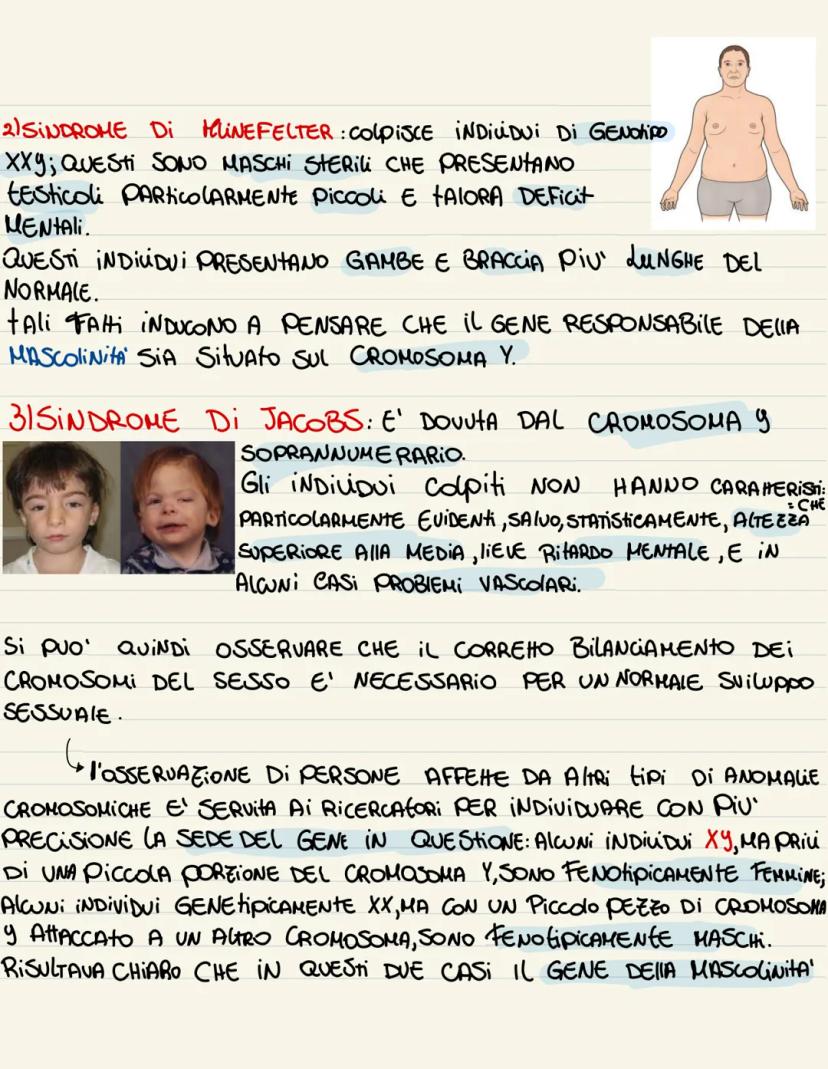 2) SINDROME DI KLINEFELTER: COLPISCE INDIVIDUI DI GENOTIPO
XXY; QUESTI SONO MASCHI STERILI CHE PRESENTANO
TESTICOLI PARTICOLARMENTE PICCOLI E TALORA DEFICIT
MENTALI.
QUESTI INDIVIDUI PRESENTANO GAMBE E BRACCIA PIU' LUNGHE DEL
NORMALE.
TALI FATTI INDUCONO A PENSARE CHE IL GENE RESPONSABILE DELLA
MASCOLINITA' SIA SITUATO SUL CROMOSOMA Y.
3) SINDROME DI JACOBS: E' DOVUTA DAL CROMOSOMA Y
SOPRANNUMERARIO.
GLI INDIVIDUI COLPITI NON HANNO CARATTERISTI=
=CHE
PARTICOLARMENTE EVIDENTI, SALVO, STATISTICAMENTE, ALTEZZA
SUPERIORE ALLA MEDIA, LIEVE RITARDO MENTALE, E IN
ALCUNI CASI PROBLEMI VASCOLARI.
SI PUO' QUINDI OSSERVARE CHE IL CORRETTO BILANCIAMENTO DEI
CROMOSOMI DEL SESSO E' NECESSARIO PER UN NORMALE SVILUPPO
SESSUALE.
L'OSSERVAZIONE DI PERSONE AFFETTE DA ALTRI TIPI DI ANOMALIE
CROMOSOMICHE E' SERVITA AI RICERCATORI PER INDIVIDUARE CON PIU'
PRECISIONE LA SEDE DEL GENE IN QUESTIONE: ALCUNI INDIVIDUI XY, MA PRIVI
DI UNA PICCOLA PORZIONE DEL CROMOSOMA Y, SONO FENOTIPICAMENTE FEMMINE;
ALCUNI INDIVIDUI GENETIPICAMENTE XX, MA CON UN PICCOLO PEZZO DI CROMOSOMA
Y ATTACCATO A UN ALTRO CROMOSOMA, SONO FENOTIPICAMENTE MASCHI.
RISULTAVA CHIARO CHE IN QUESTI DUE CASI IL GENE DELLA MASCOLINITA'